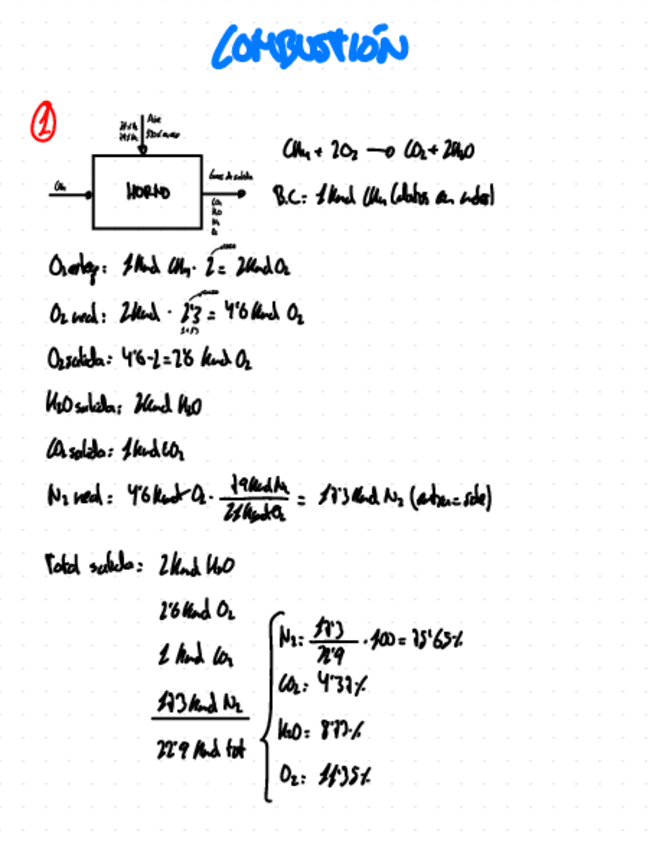 COMBUSTIÓN
1
Aire
HORNO
CH₄
Gases de salida
CO₂
H₂O
N₂
O₂
CH₄ + 2O₂ → CO₂ + 2H₂O
B.C: 1 Kmol CH₄ (datos en moles)
1 Kmol CH₄ · 2 = 2 Kmol O₂
O₂ real: 2 Kmol · 2'3 = 4'6 Kmol O₂
O₂ salida: 4'6-2=2'6 Kmol O₂
H₂O salida: 2 Kmol H₂O
CO₂ salida: 1 Kmol CO₂
N₂ real: 4'6 Kmol O₂ · 79 Kmol N₂ / 21 Kmol O₂ = 17'3 Kmol N₂
Total salida: 2 Kmol H₂O
2'6 Kmol O₂
1 Kmol CO₂
17'3 Kmol N₂
22'9 Kmol tot
N₂: 17'3 / 22'9 · 100 = 75'65%
CO₂: 4'37%
H₂O: 8'73%
O₂: 11'35%